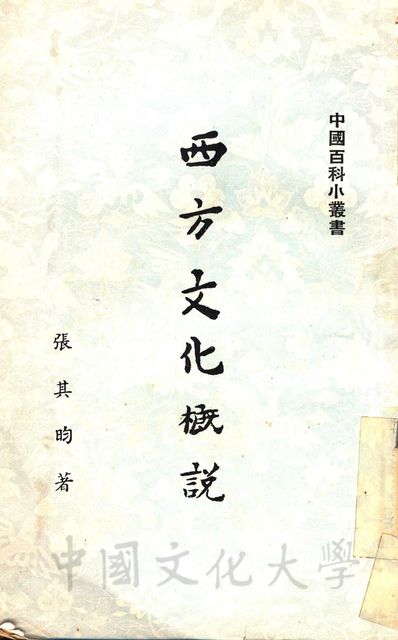 中國百科小叢書
西方文化概説
張其昀著
中國文化大學